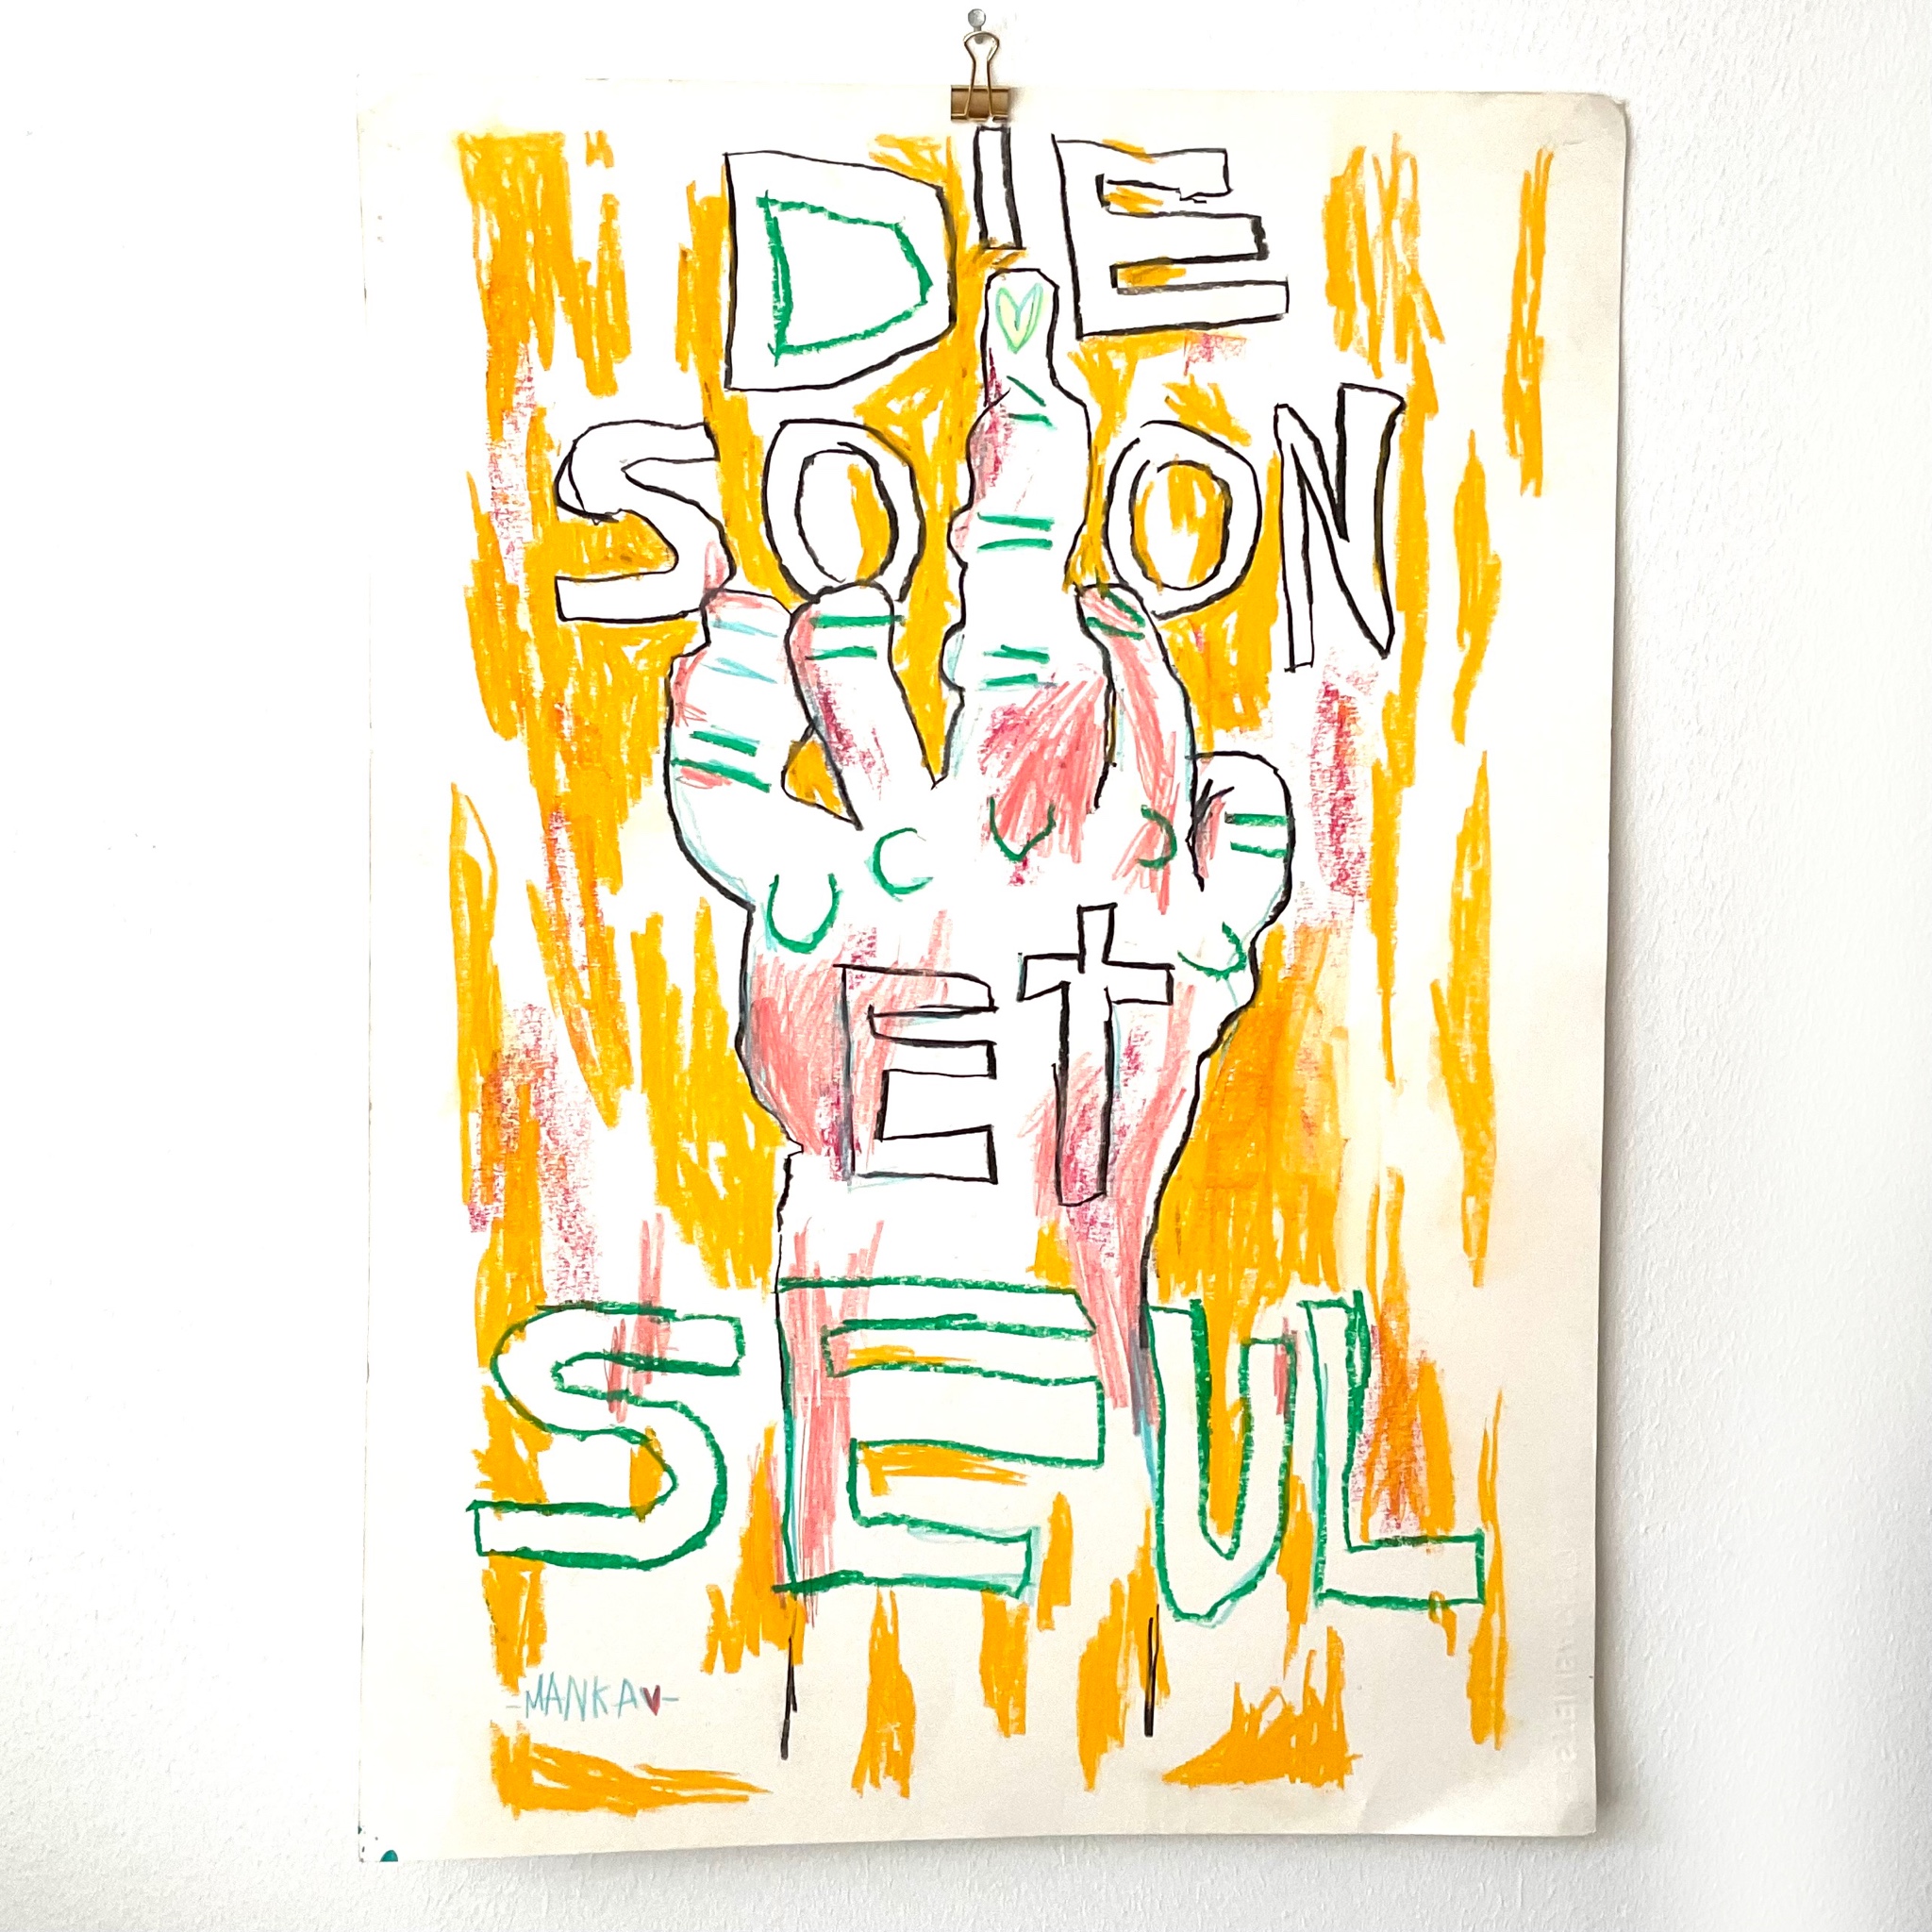 DIE
SOON
ET
SEUL
-MANKA♥-